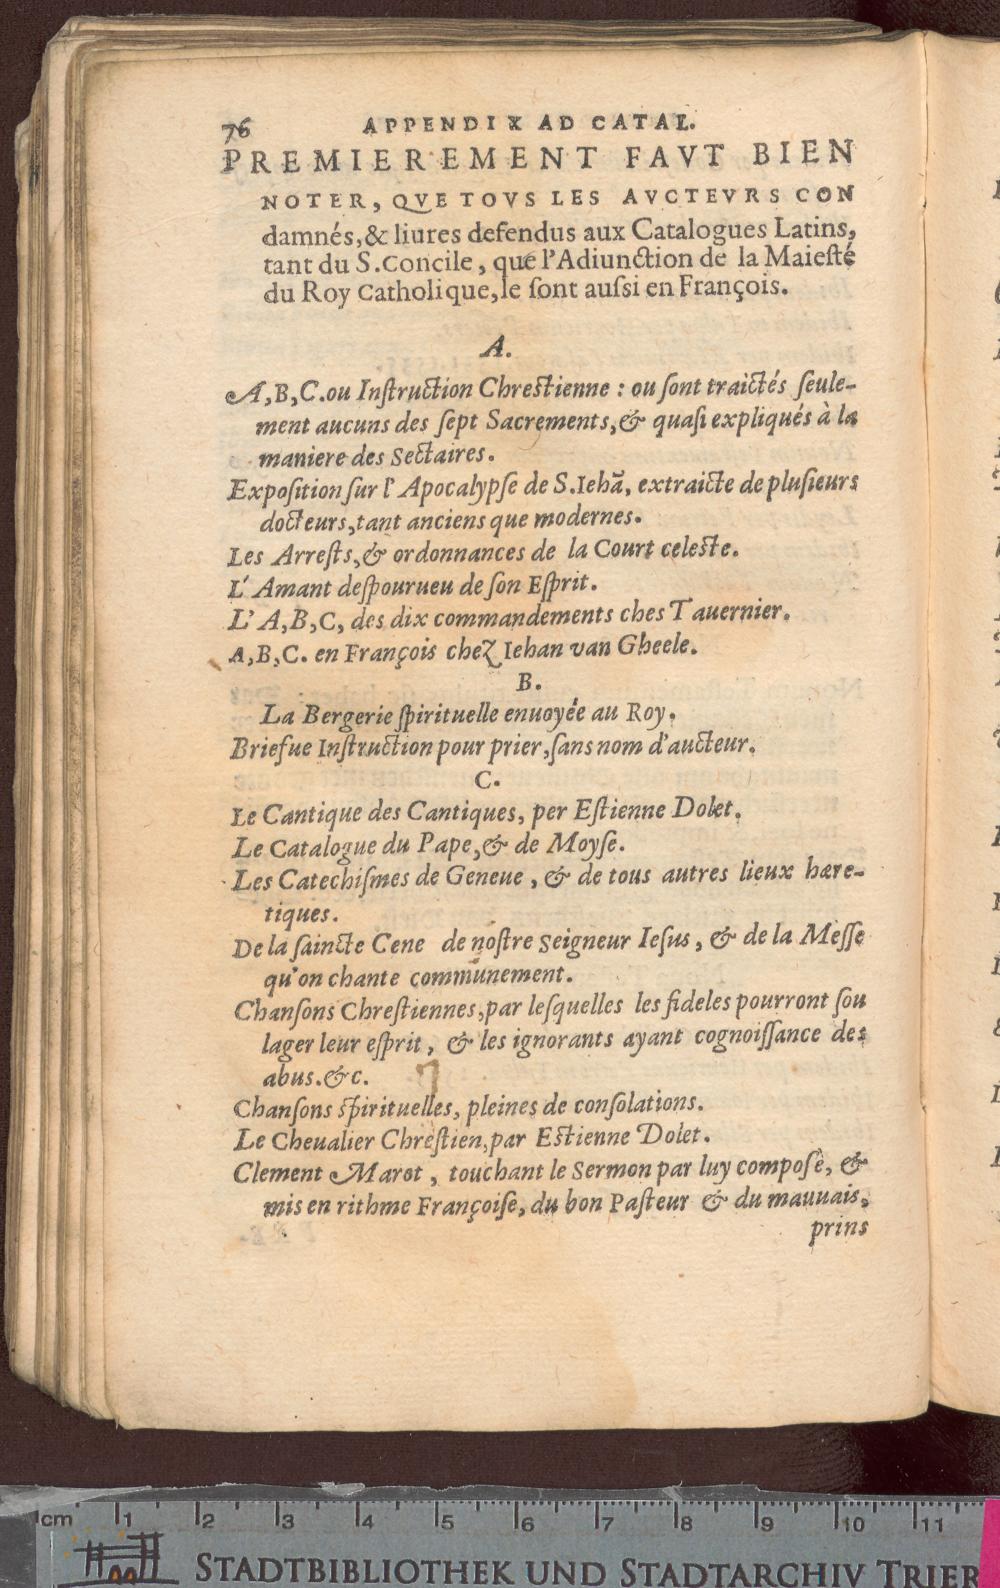 76 APPENDIX AD CATAL.
PREMIEREMENT FAVT BIEN
NOTER, QVE TOVS LES AVCTEVRS CON
damnés,& liures defendus aux Catalogues Latins,
tant du S.Concile, que l'Adiunction de la Maiesté
du Roy Catholique,le sont aussi en François.
A.
A,B,C.ou Instruction Chrestienne : ou sont traictés seule-
ment aucuns des sept Sacrements,& quasi expliqués à la
maniere des Sectaires.
Exposition sur l' Apocalypse de S.Iehã, extraicte de plusieurs
docteurs,tant anciens que modernes.
Les Arrests,& ordonnances de la Court celeste.
L' Amant despourueu de son Esprit.
L' A,B,C, des dix commandements ches Tauernier.
A,B,C. en François chez Iehan van Gheele.
B.
La Bergerie spirituelle enuoyée au Roy.
Briefue Instruction pour prier,sans nom d'aucteur.
C.
Le Cantique des Cantiques, per Estienne Dolet.
Le Catalogue du Pape,& de Moyse.
Les Catechismes de Geneue , & de tous autres lieux hære-
tiques.
De la saincte Cene de nostre Seigneur Iesus , & de la Messe
qu'on chante communement.
Chansons Chrestiennes,par lesquelles les fideles pourront sou
lager leur esprit , & les ignorants ayant cognoissance des
abus.&c.
Chansons spirituelles, pleines de consolations.
Le Cheualier Chrestien,par Estienne Dolet.
Clement Marot , touchant le Sermon par luy composè, &
mis en rithme Françoise, du bon Pasteur & du mauuais,
prins
cm 1 2 3 4 5 6 7 8 9 10 11
STADTBIBLIOTHEK UND STADTARCHIV TRIER